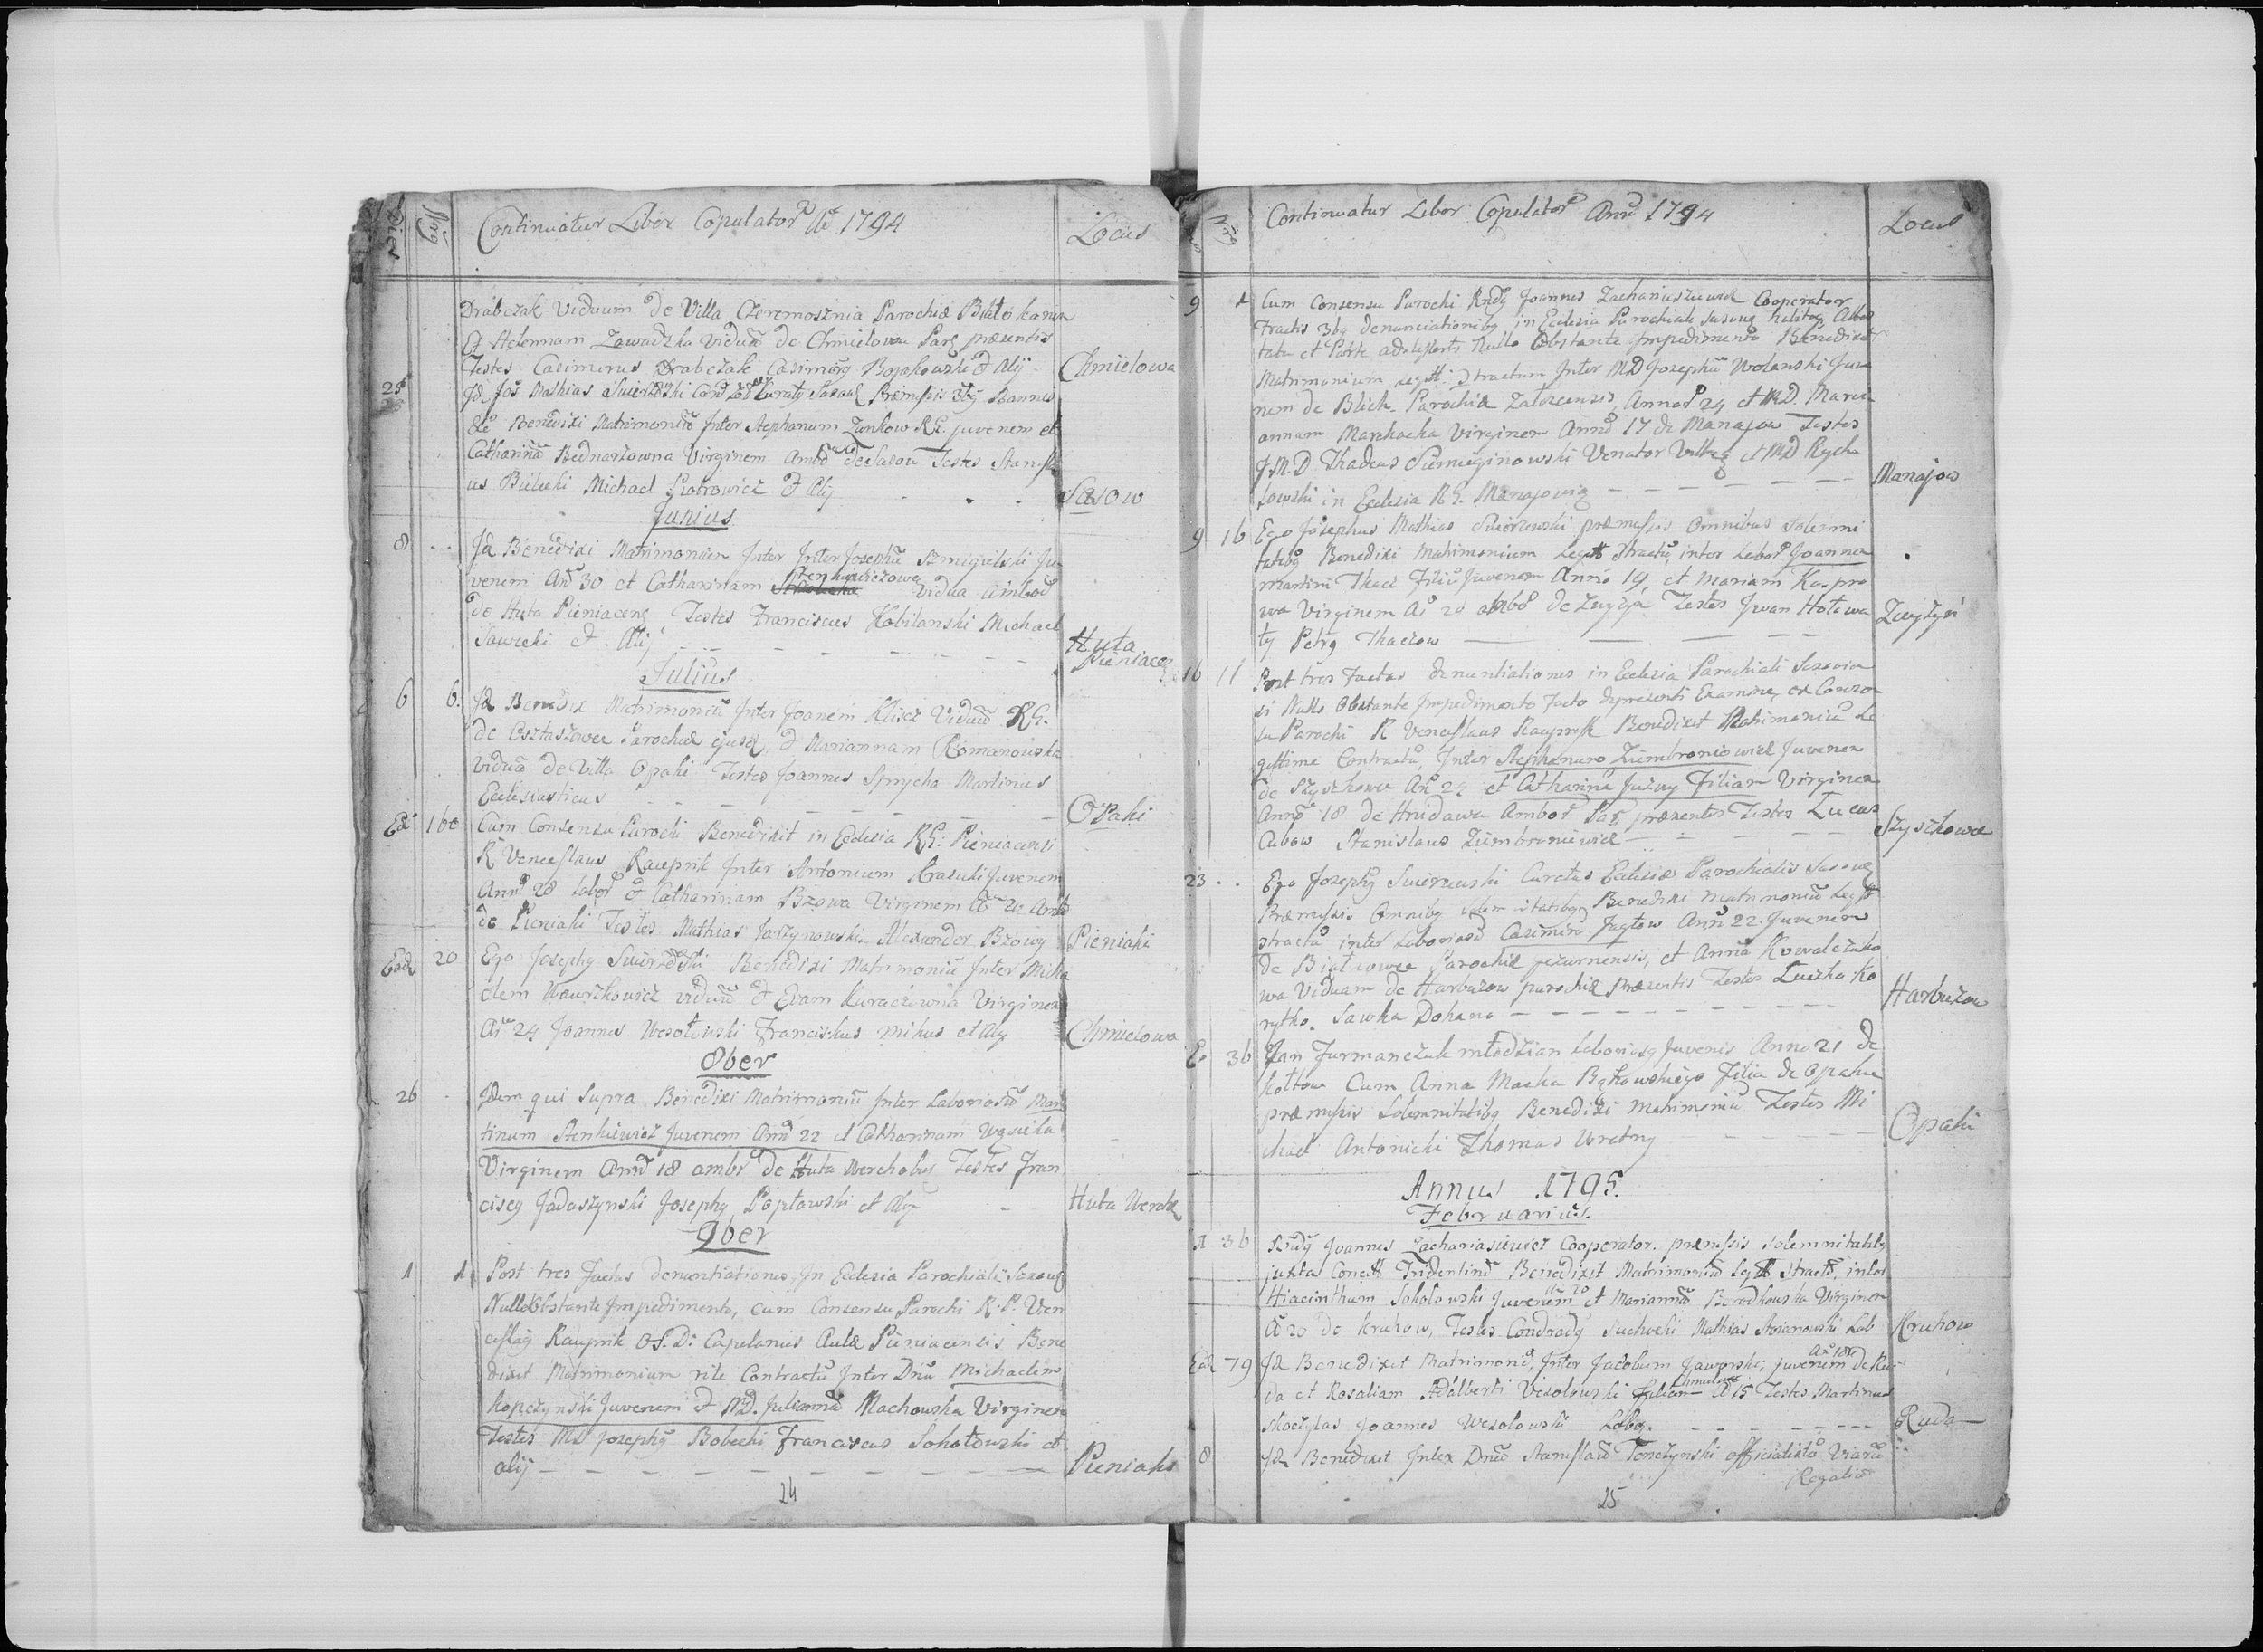 Dies
Nrg
Continuatur Liber Copulator Ao 1794
Locus
Drabczak Viduum de Villa Czeremosznia Parochiæ Białokamin
& Helennam Zawadzka viduã de Chmielowa Parg præsentis
Testes Casimirus Drabczak Casimirg Bojakowski & Alij
Chmielowa
25
Id Jos Mathias Swierzski Curatg Sasoug Præmissis 3bg Bannis
Benedixi Matrimoniũ Inter Stephanum Zankow RG. juvenem et
Catharinã Bednarzowna Virginem Ambo de Sasow Testes Stanisla
us Bielecki Michael Piotrowicz & Alij
Sasow
Junius
8
Id Benedixi Matrimonium Inter Inter Josephũ Szmigielski Ju
venem Ao 30 et Catharinam Stenkiewiczowa vidua Ambo
de Huta Pieniaceng Testes Franciscus Kobilanski Michael
Sawicki & Alij
Huta
Pieniaceg
Julius
6
6.
Id Benedix Matrimoniũ Inter Joanem Klisez Viduũ RG.
de Osztaszowce Parochiæ ejusd & Mariannam Romanowska
viduã de Villa Opaki Testes Joannes Sprycha Martinus
Ecclesiasticus
Opaki
Ed
160
Cum Consensu Parochi Benedixit in Ecclesia RG: Pieniacensi
R Venceslaus Raupnik Inter Antonium Krasuki Juvenem
Anno 28 labor & Catharinam Bzowa Virginem Ao 20 Ambo
de Pieniaki Testes Mathias Jarzynowski Alexander Bzowy
Pieniaki
Ead
20
Ego Josephg Swierzski Benedixi Matrimoniũ Inter Micha
elem Wawrzkowicz viduũ & Evam Kuraczowna Virginem
Ao 24 Joannes Wesołowski Franciskus Mikus et Alij
Chmielowa
8ber
26
Idem qui Supra Benedixi Matrimoniũ Inter Laboriosũ Mar
tinum Stenkiewicz Juvenem Anno 22 et Catharinam Wąsicka
Virginem Anno 18 ambor de Huta Werchobus Testes Fran
ciscg Jadaszynski Josephg Popławski et Alij
Huta Werch
9ber
1
1
Post tres factas denuntiationes, In Ecclesia Parochiali Sasoug
Nullo Obstante Impedimento, cum Consensu Parochi R. P. Ven
ceslaug Raupnik O.S.D: Capelanus Aulæ Pieniacensis Bene
dixit Matrimonium rite Contractũ Inter Dnũ Michaelem
Kopczynski Juvenem & MD. Juliannã Machowska Virginem
Testes MD Josephg Bobecki Franciscus Sokołowski et
alij
Pieniaki
24
Continuatur Liber Copulator Anno 1794
Locus
9
1
Cum Consensu Parochi Rndg Joannes Zachariasiewicz Cooperator
Factis 3bg denunciationibg in Ecclesia Parochiali Sasoug
Nullo Obstante Impedimento Benedixit
Matrimonium legitt: Stractum Inter MD Josephũ Wolanski Juve
nem de Blich Parochiæ Zalozcensis Annor 24 et MD. Mari
annam Marchocka Virginem Anno 17 de Manajow Testes
J.M.D Thadeus Siemieginowski Venator et MD Rycha
łowski in Ecclesia RG. Manajovig
Manajow
9
16
Ego Josephus Mathias Swierzewski præmissis Omnibus Solemni
tatibg Benedixi Matrimonium Legitt Stractũ, inter Labor Joanna
Martini Tkacz filiũ Juvenem Anno 19, et Mariam Karpo
wa Virginem Ao 20 ambo de Zwyżyn Testes Iwan Hołowa
ty Petrg Tkaczow
Zwyżyń
16
11
Post tres factas denuntiationes in Ecclesia Parochiali Sasovien
si Nullo Obstante Impedimento facto Examine, ex Consen
su Parochi R Venceslaus Raupnik Benedixit Matrimoniũ Le
gittime Contractũ, Inter Stephanum Zimbroniowicz Juvenem
de Szyszkowce Ao 24 et Catharinã Juzwy Filiam Virginem
Anno 18 de Hrudawa Ambor Par præsentis Testes Lucas
Cubow Stanislaus Zimbroniewicz
Szyszkowce
23
Ego Josephg Swierzewski Curatus Ecclesiæ Parochialis Sasoug
Præmissis Omnibg solemnitatibg Benedixi Matrimoniũ Legitt
Stractũ inter Laboriosũ Casimirũ Jagłow Anno 22 Juvenem
de Białkowce Parochiæ Jezurnensis, et Annã Kowalczuko
wa Viduam de Harbuzow parochiæ præsentis Testes Luczko Ko
rytko. Sawka Dohana
Harbuzow
E
36
Jan Furmanczuk młodzian Laboriosg Juvenis Anno 21 de
Kołtow Cum Anna Macka Bąkowskiego Filia de Opaki
præmissis Solemnitatibg Benedixi Matrimoniũ Testes Mi
chael Antonicki Thomas Wratny
Opaki
Annus 1795.
Februarius.
1
36
Rndg Joannes Zachariasiewicz Cooperator. præmissis solemnitatibg
juxta Concill Tridentinũ Benedixit Matrimoniũ legitt Stractũ, inter
Hiacinthum Sokolowski Juvenem Ao 20 et Mariannã Borodkowska Virginem
Ao 20 de Kruhow, Testes Condradg Suchecki Mathias Stoianowski Lab
Kruhow
Ead
79
Id Benedixit Matrimoniũ, Inter Jacobum Jaworski juvenem Ao 18 de Ru
da et Rosaliam Adalberti Vesolowski filiam Chmielowa Ao 15 Testes Martinus
Skoczylas Joannes Wesolowski Labo.
Ruda
8
Id Benedixit Inter Dnũ Stanislaũ Tenczynski officialistã Viarũ
Regaliũ
25